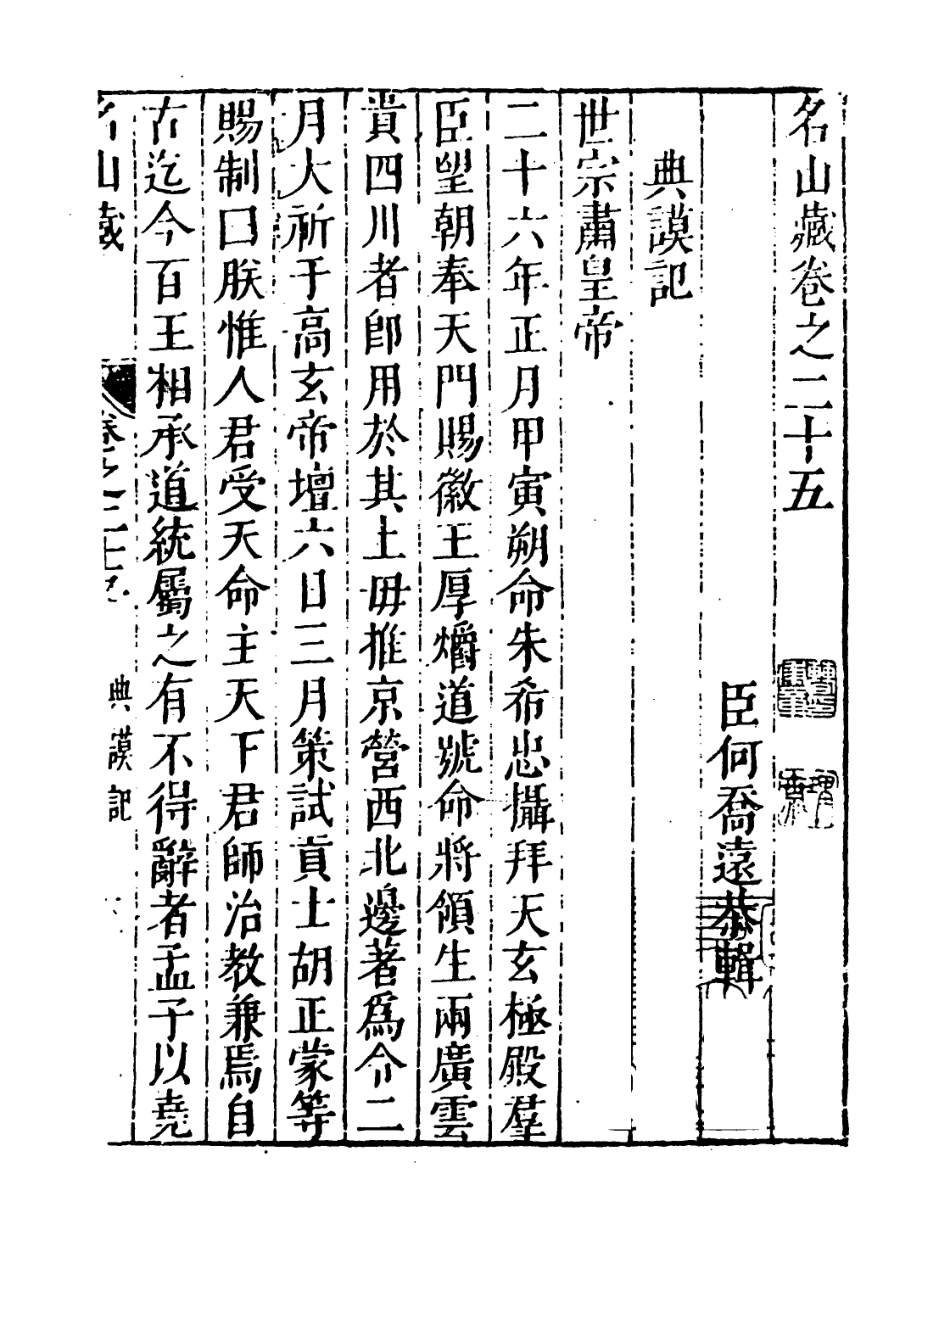 名山藏卷之二十五
臣何喬遠恭輯
典謨記
世宗肅皇帝
二十六年正月甲寅朔命朱希忠攝拜天玄極殿羣
臣望朝奉天門賜徽王厚爝道號命將領生兩廣雲
貴四川者卽用於其土毋推京營西北邊著爲令二
月大祈于高玄帝壇六日三月策試貢士胡正蒙等
賜制曰朕惟人君受天命主天下君師治教兼焉自
古迄今百王相承道統屬之有不得辭者孟子以堯
名山藏 卷之二十五 典謨記